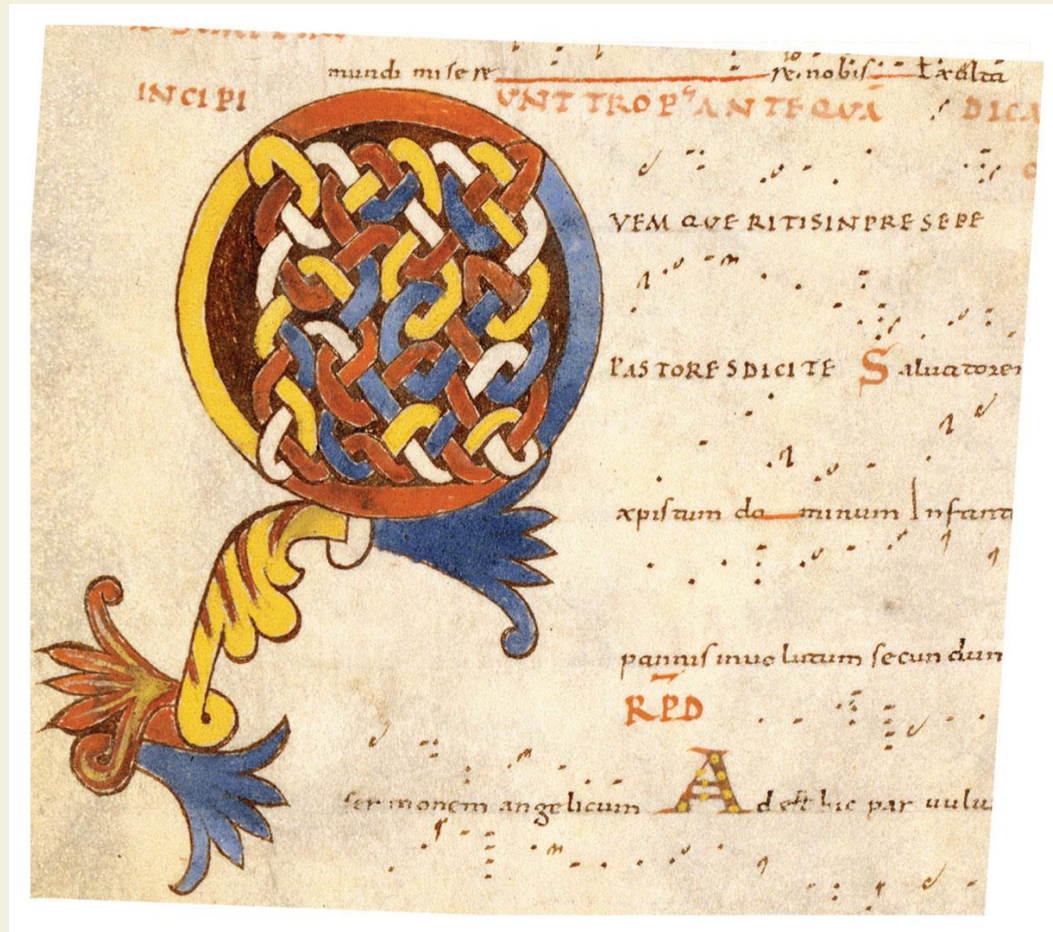 mundi misere re nobis Exalta
INCIPIUNT TROP ANTEQUA DICA
QVEM QVERITIS IN PRESEPE
PASTORES DICITE Salvatorem
xpistum dominum Infanta
pannis inuolutum secundum
RPD
sermonem angelicum Adest hic paruulu